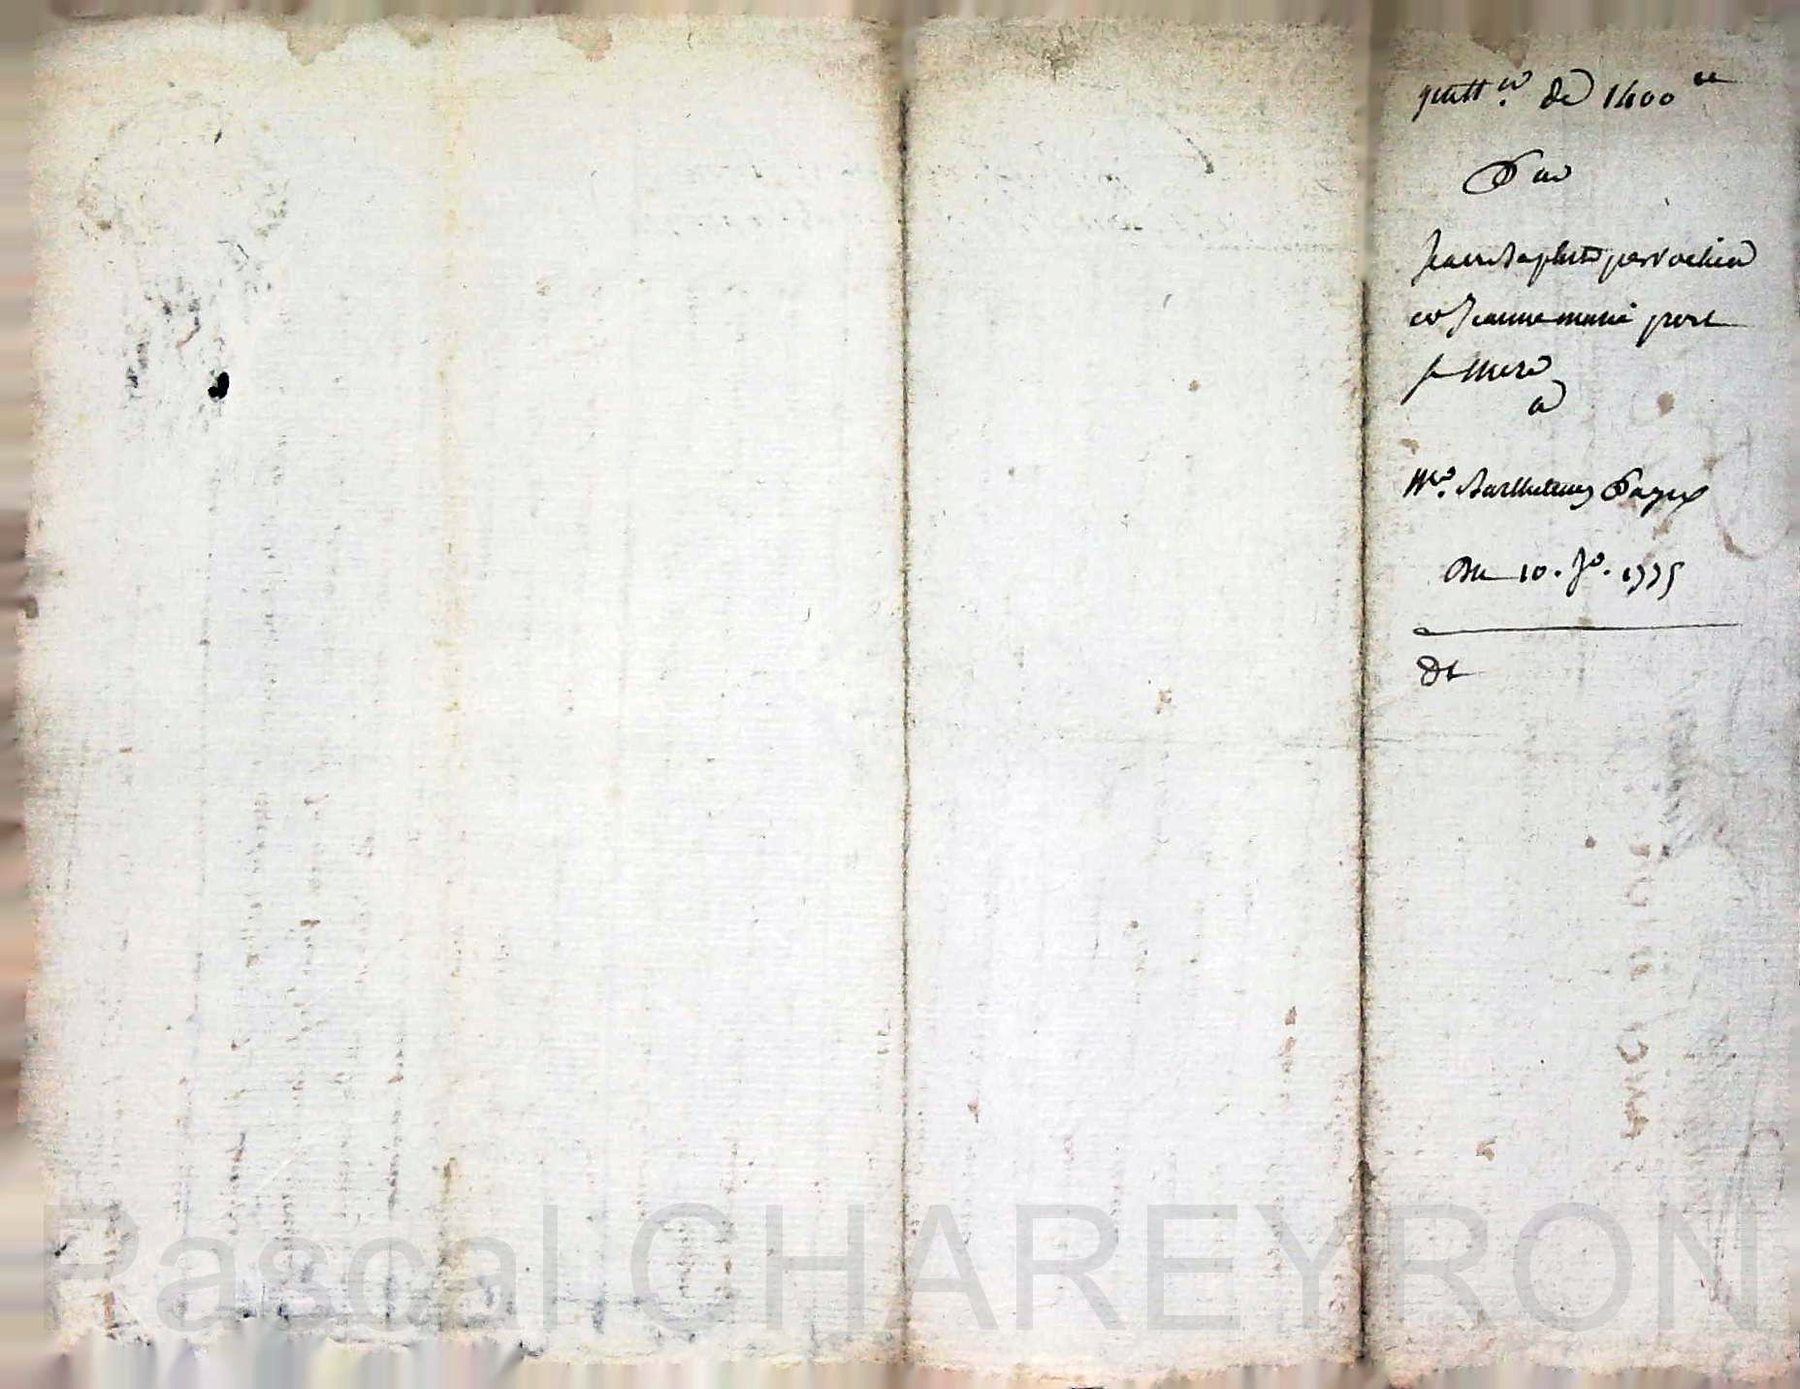 quitt.ce de 1400 ll
Par
Jean Baptiste perrochia
et Jeanne marie pret
sa Mere
a
Me. Barthelemy Pages
Du 10. 7b. 1775
dt
Pascal CHAREYRON